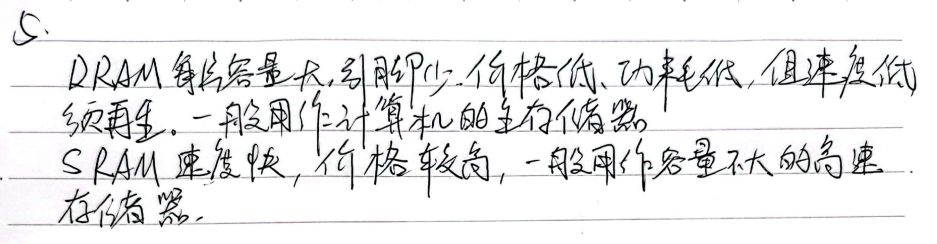 5.
DRAM每片容量大,引脚少.价格低、功耗低,但速度低
须再生。一般用作计算机的主存储器
SRAM速度快,价格较高,一般用作容量不大的高速
存储器.